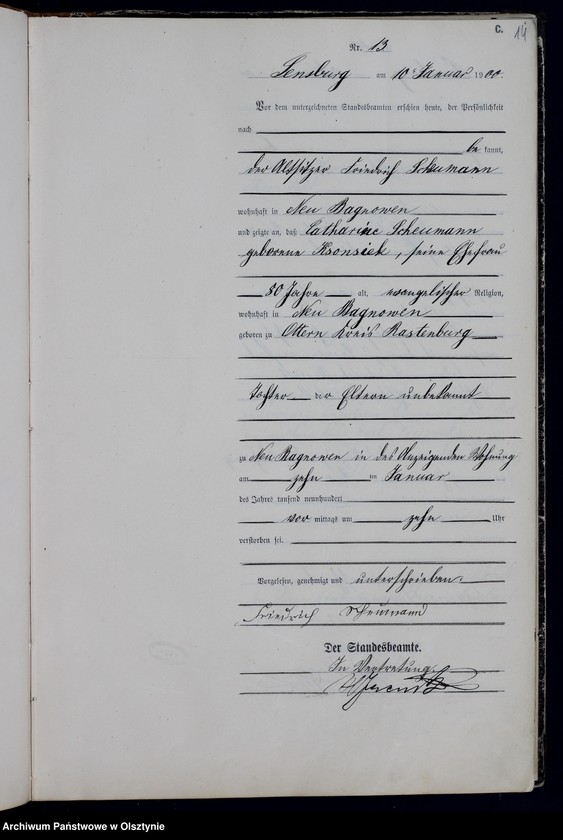 C.
14
Nr. 13
Sensburg am 10 Januar 1900.
Vor dem unterzeichneten Standesbeamten erschien heute, der Persönlichkeit
nach
be kannt,
der Altsitzer Friedrich Scheumann
wohnhaft in Neu Bagnowen
und zeigte an, daß Catharine Scheumann
geborene Ksonsiek, seine Ehefrau
80 Jahre alt, evangelischer Religion,
wohnhaft in Neu Bagnowen
geboren zu Ottern Kreis Rastenburg
Tochter der Eltern unbekannt
zu Neu Bagnowen in des Anzeigenden Wohnung
am zehn ten Januar
des Jahres tausend neunhundert
vor mittags um zehn Uhr
verstorben sei.
Vorgelesen, genehmigt und unterschrieben.
Friedrich Scheumann
Der Standesbeamte.
In Vertretung.
Archiwum Państwowe w Olsztynie